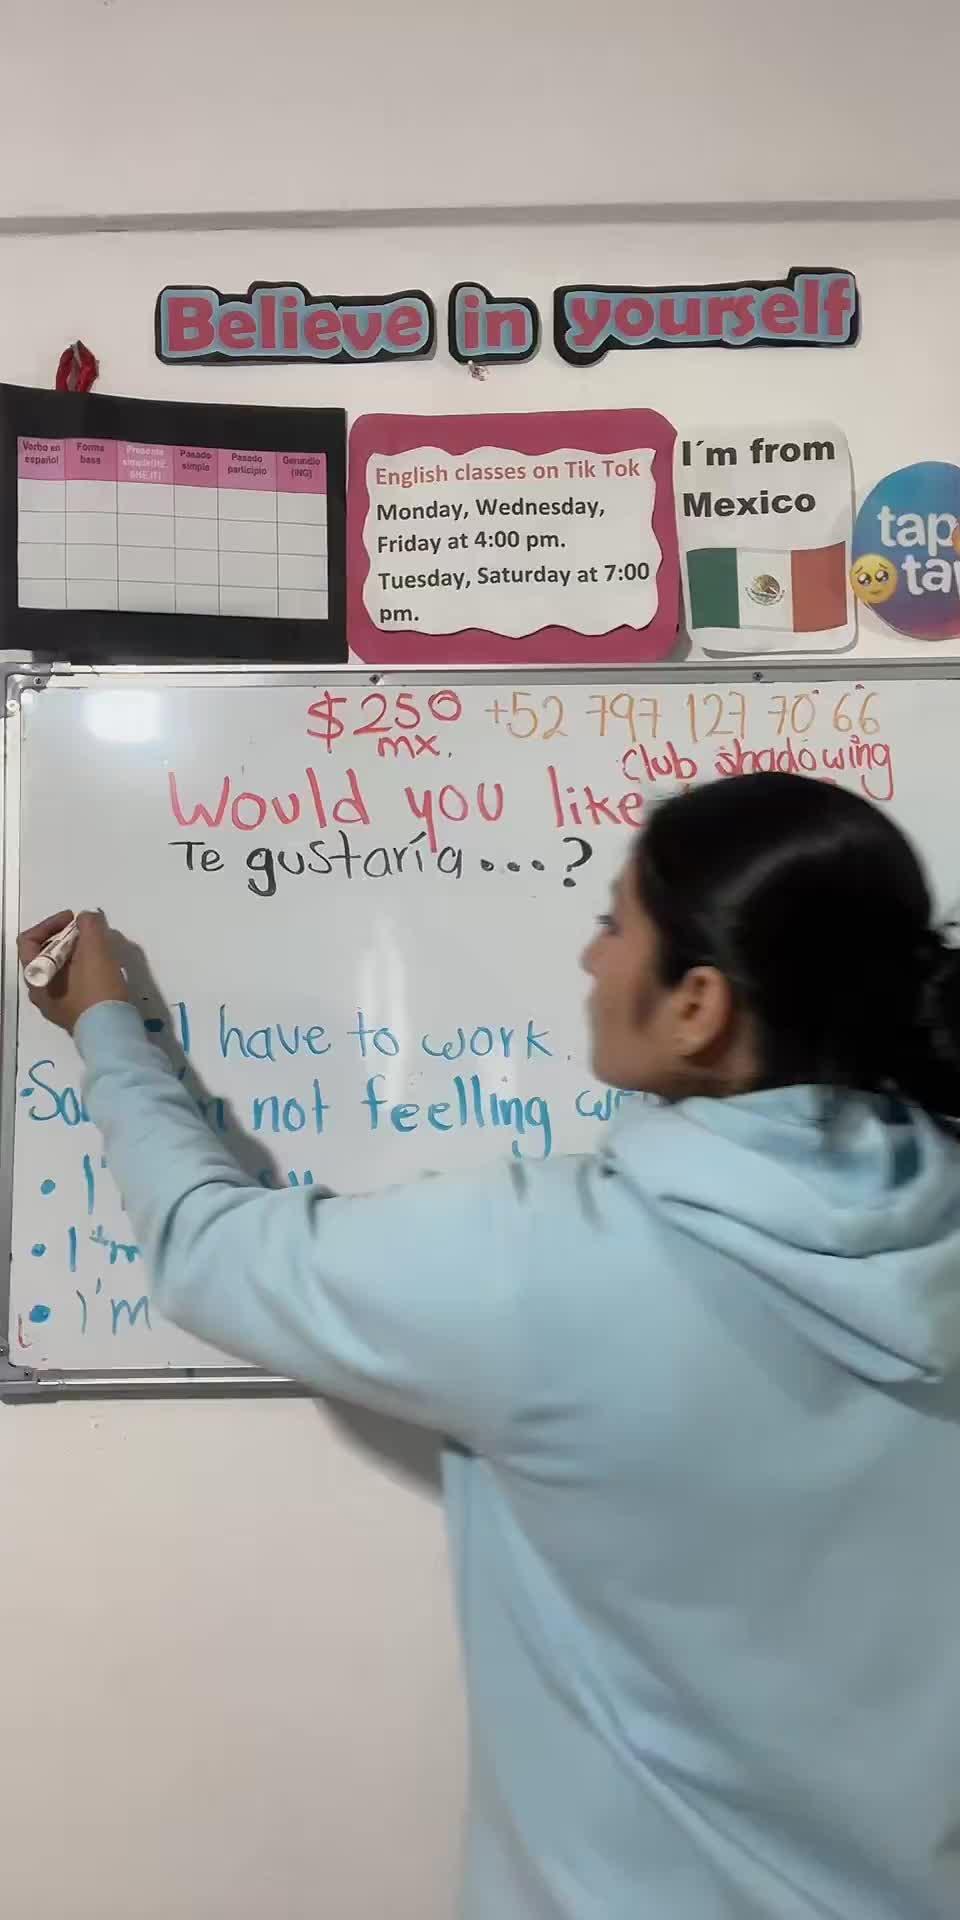 Believe in yourself
Verbo en español
Forma base
Presente simple(HE, SHE,IT)
Pasado simple
Pasado participio
Gerundio (ING)
English classes on Tik Tok
Monday, Wednesday,
Friday at 4:00 pm.
Tuesday, Saturday at 7:00
pm.
I´m from
Mexico
tap
$250 +52 797 127 70 66
mx.
Club shadowing
Would you like
Te gustaría...?
•I have to work.
not feelling
• I'm
• I'm